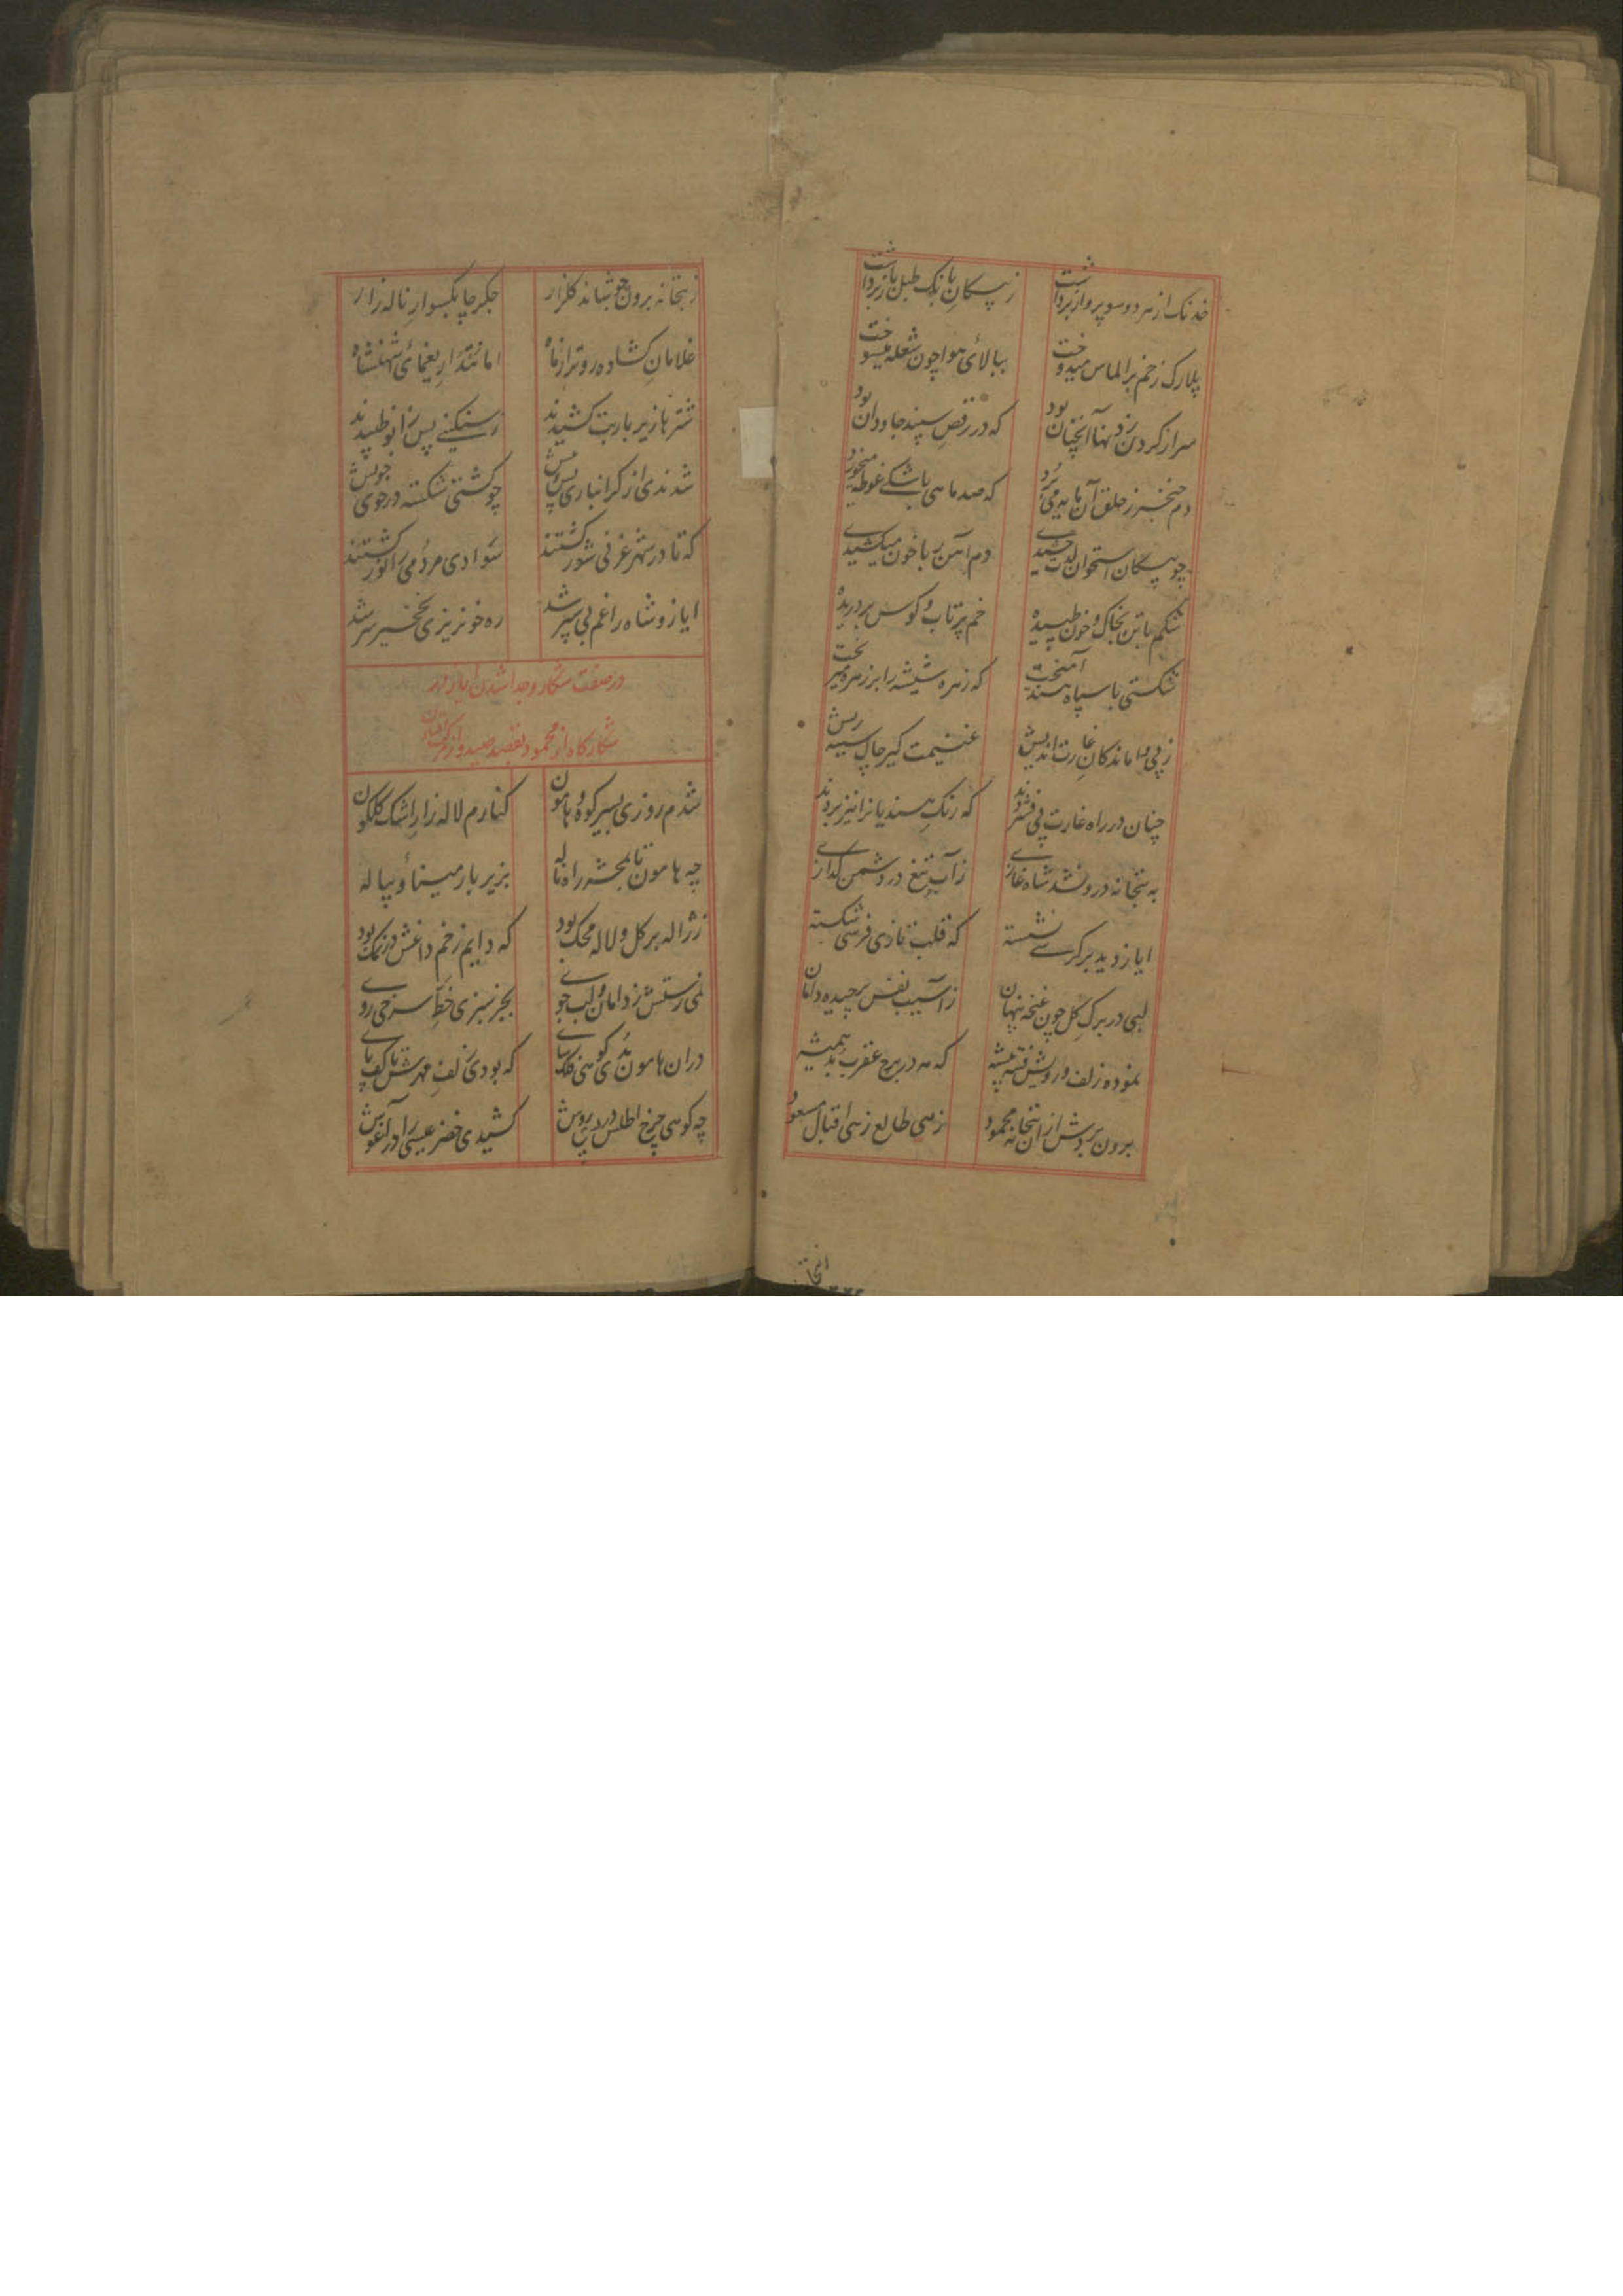 خدنک از هر دو سو پرواز برداشت ز پیکان بانک طبل باز برداشت
پلارک زخم بر الماس میدوخت ببالای هوا چون شعله میسوخت
سر از کردن زدنها آنچنان بود که در رقص سپند جاودان بود
دم خنجر ز حلق آن مایه می برد که صد ماهی باشکی غوطه میخورد
چو پیکان استخوان لذت چشیدے دم آهن ربا خون میکشیدے
شکم با تن بخاک و خون طپیده خم پرتاب و کوس بر دریده
شکستی با سپاه هند آمیخت که زهره شیشه را بر زهره میریخت
ز پی واماندکان غارت اندیش غنیمت کیر چاک سینه ریش
چنان در راه غارت پی فشردند که رنک هندیانرا نیز بردند
به بتخانه درون شد شاه غازے ز آب تیغ در دشمن کدازے
ایاز دید بر کرسے نشسته که قلب نازی فرسی شکسته
لبی در برک کل چون غنچه پنهان ز آسیب نفس برچیده دامان
نموده زلف و رویش فتنه پیشه که مه در برج عقرب بد همیشه
برون بردش از ان بتخانه محمود زهی طالع زهی اقبال مسعود
ز بتخانه برون جوشاند کلزار جکر چابکسوار ناله زار
غلامان کشاده روتر از ماه امانتدار یغمائ شهنشاه
شترها زیر بار بت کشیدند ز سنکینے پس زانو طپیدند
شدندی از کرانباری پس و پیش چو کشتی شکسته در جوی
که تا در شهر غزنی شور کشتند سوادی مردمی را نور کشتند
ایاز و شاه را غم بی سپر شد ره خونریزی نخچیر سر شد
در صفت شکار و جدا شدن ایاز در
شکارکاه از محمود بقصد صید و
شدم روزی بسیر کوه و هامون کنارم لاله زار اشک کلکون
چه هامون تا بمحشر راه ناله بزیر بار مینا و پیاله
ز ژاله بر کل و لاله محک بود که دایم زخم داغش در نمک بود
نمی رستش ز دامان و لب جوے بجز سبزی خط سرخی روے
دران هامون بدی کوهی فلک سای که بودی زلف مهرش تا کف پاے
چه کوهی چرخ اطلس در پیش کشیدی خضر عیسی را در آغوش